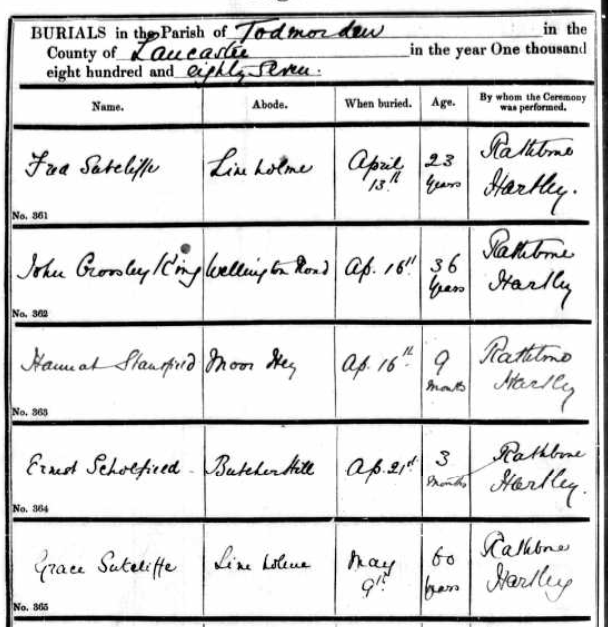 BURIALS in the Parish of Todmorden in the
County of Lancaster in the year One thousand
eight hundred and eighty seven.
Name. Abode. When buried. Age. By whom the Ceremony was performed.
Fred Sutcliffe Line holme April 13th 23 Years Rathbone Hartley.
No. 361
John Crossley King Wellington Road Ap. 16th 36 Years Rathbone Hartley
No. 362
Hannah Stansfield Moor Hey Ap. 16th 9 Months Rathbone Hartley
No. 363
Ernest Scholfield Butcher Hill Ap. 21st 3 Months Rathbone Hartley.
No. 364
Grace Sutcliffe Line holme May 9th 60 Years Rathbone Hartley
No. 365